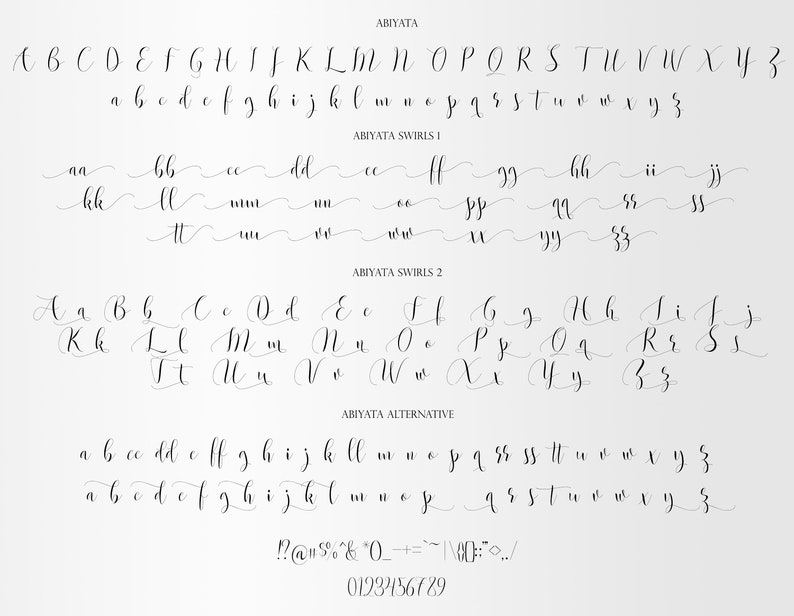 ABIYATA
A B C D E F G H I J K L M N O P Q R S T U V W X Y Z
a b c d e f g h i j k l m n o p q r s t u v w x y z
ABIYATA SWIRLS 1
aa bb cc dd ee ff gg hh ii jj
kk ll mm nn oo pp qq rr ss
tt uu vv ww xx yy zz
ABIYATA SWIRLS 2
A a B b C c D d E e F f G g H h I i J j
K k L l M m N n O o P p Q q R r S s
T t U u V v W w X x Y y Z z
ABIYATA ALTERNATIVE
a b cc dd e ff g h i j k ll m n o p q rr ss tt u v w x y z
a b c d e f g h i j k l m n o p q r s t u v w x y z
!?@#$%^&*()_-+=`~|\{}[]:;"'<>,./
0123456789